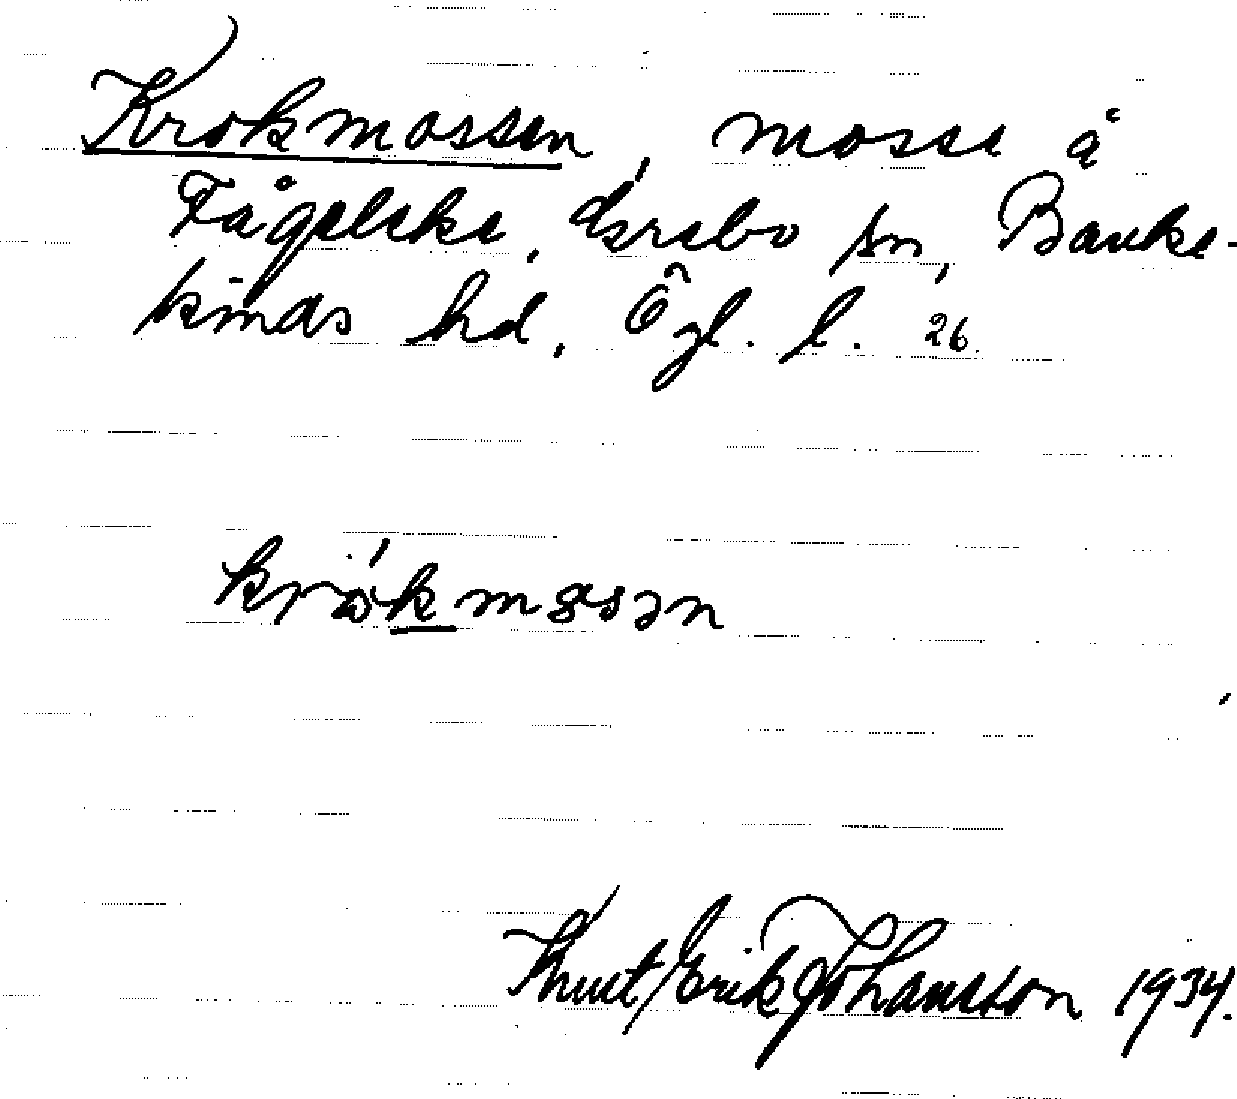 Krokmossen, mosse å
Fågelske, Yxrebo sn, Banke-
kinds hd. Ögl. l. 26.
krokmosən
Knut Erik Johansson 1934.